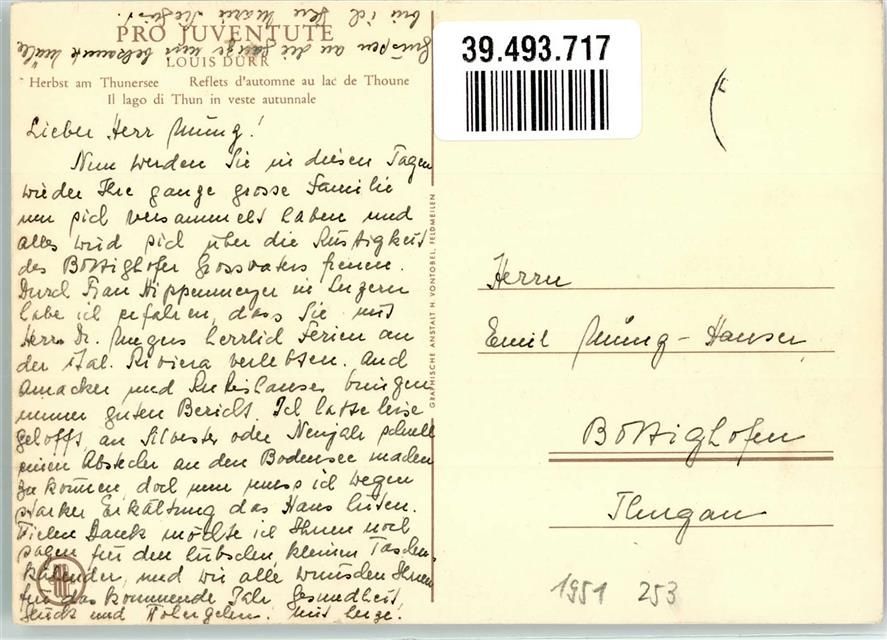 PRO JUVENTUTE
LOUIS DÜRR
Herbst am Thunersee Reflets d'automne au lac de Thoune
Il lago di Thun in veste autunnale
Lieber Herr Münz!
Nun werden Sie in diesen Tagen
wieder Ihre ganze grosse Familie
um sich versammelt haben und
alles wird sich über die Rüstigkeit
des Bottighofer Grossvaters freuen.
Durch Frau Hippenmeyer in Luzern
habe ich erfahren, dass Sie mit
Herr Dr. herrlich Ferien an
der ital. Riviera verlebten. Auch
Amacker und bringen
immer guten Bericht. Ich hatte leise
gehofft, an Silvester oder Neujahr schnell
einen Abstecher an den Bodensee machen
zu können, doch nun muss ich wegen
starker Erkältung das Haus hüten.
Vielen Dank möchte ich Ihnen noch
sagen für den hübschen, kleinen Taschen-
kalender, und wir alle wünschen Ihnen
für das kommende Jahr Gesundheit,
Glück und Wohlergehen. Mit herzl.
Grüssen an die ganze mir bekannte
bin ich Ihre Marie
GRAPHISCHE ANSTALT H. VONTOBEL, FELDMEILEN
39.493.717
Herrn
Emil Münz-Hauser
Bottighofen
Thurgau
1951 253